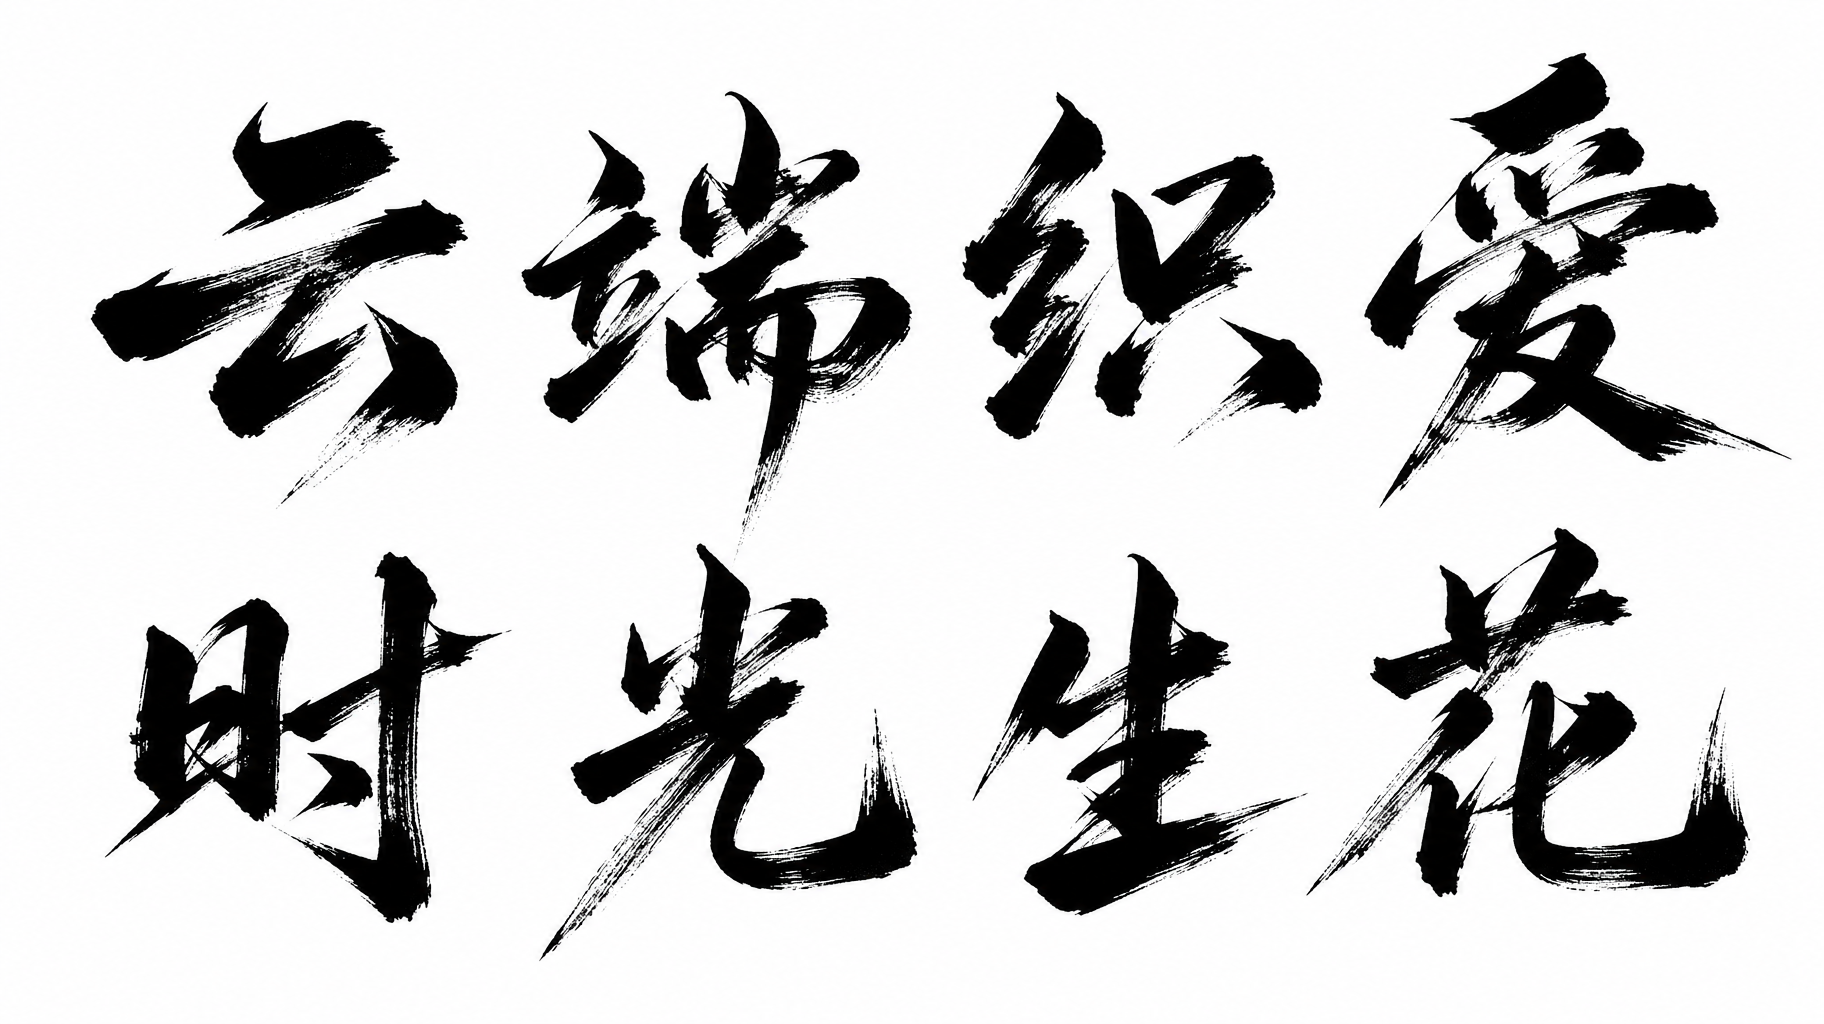 云端织爱
时光生花